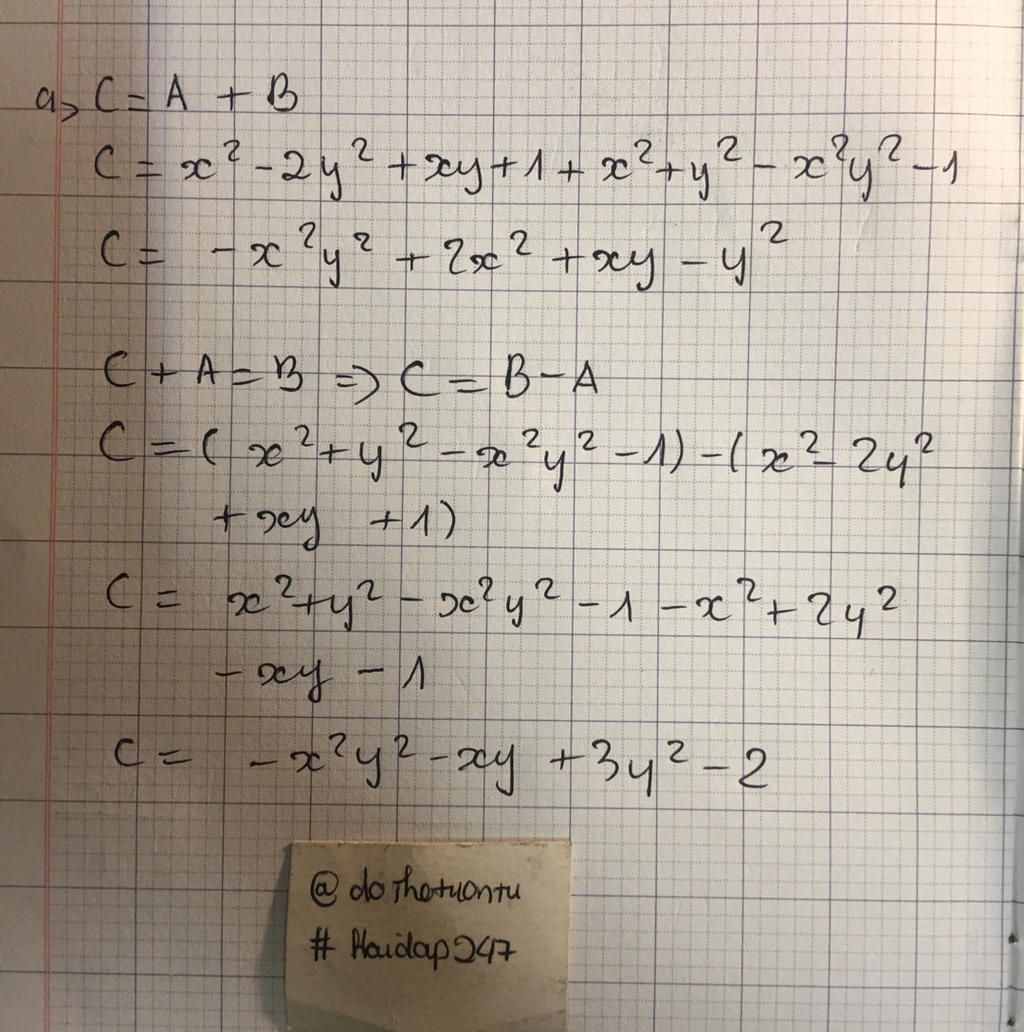 a, C = A + B
C = x² - 2y² + xy + 1 + x² + y² - x²y² - 1
C = - x²y² + 2x² + xy - y²
C + A = B => C = B - A
C = ( x² + y² - x²y² - 1) - ( x² - 2y²
+ xy + 1)
C = x² + y² - x²y² - 1 - x² + 2y²
- xy - 1
C = - x²y² - xy + 3y² - 2
@ dothotuantu
# Hoidap247